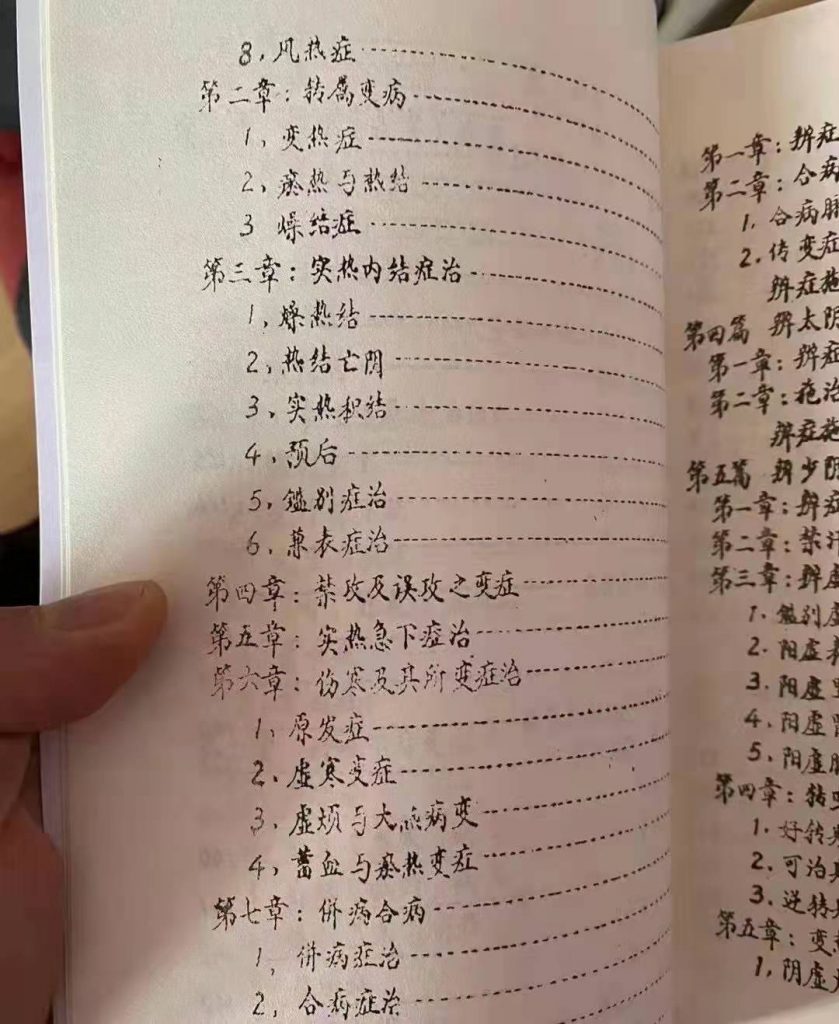 8,风热症
第二章:转属变病
1,变热症
2,瘀热与热结
3 燥结症
第三章:实热内结症治
1,燥热结
2,热结亡阴
3,实热积结
4,预后
5,鑑别症治
6,兼表症治
第四章:禁攻及误攻之变症
第五章:实热急下症治
第六章:伤寒及其所变症治
1,原发症
2,虚寒变症
3,虚烦与大 病变
4,蓄血与瘀热变症
第七章:併病合病
1,併病症治
2,合病症治
第一章:辨症
第二章:合病
1,合病
2.传变症
辨症施
第四篇 辨太阴
第一章:辨症
第二章:施治
辨症施
第五篇 辨少阴
第一章:辨症
第二章:禁汗
第三章:辨虚
1.鑑别虚
2.阳虚表
3.阳虚胃
4.阳虚胃
5.阳虚
第四章:转
1.好转
2.可治
3.逆转
第五章:变
1,阴虚火